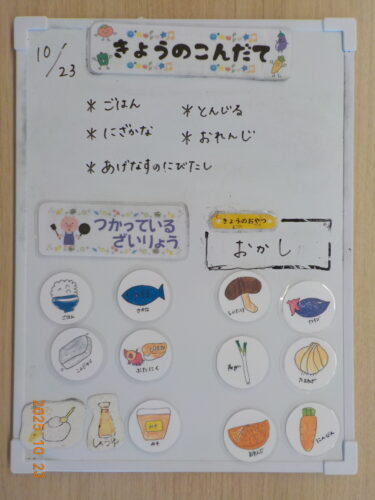 きょうのこんだて
10/23
* ごはん
* とんじる
* にざかな
* おれんじ
* あげなすのにびたし
つかっている
ざいりょう
きょうのおやつ
おかし
ごはん
さかな
しいたけ
ナス
こんにゃく
ぶたにく
ねぎ
たまねぎ
しょうゆ
みそ
みそ
おれんじ
にんじん
2025.10.23